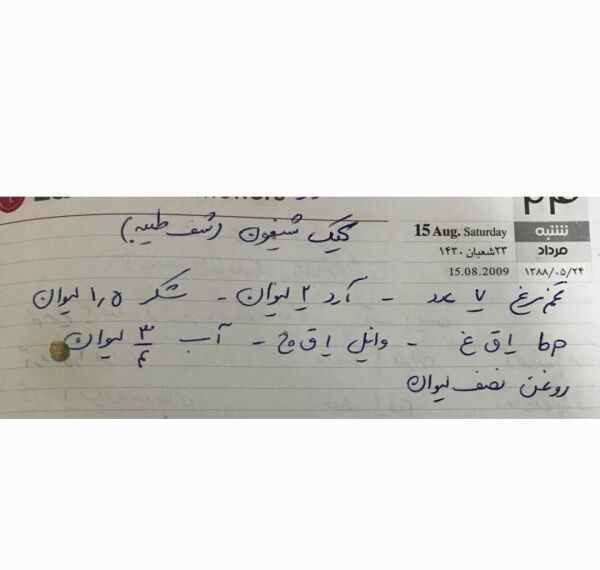 کیک شیفون (شف طیبه)
15 Aug. Saturday شنبه
۲۳ شعبان ۱۴۳۰ مرداد
15.08.2009 ۱۳۸۸/۰۵/۲۴
تخم مرغ ۷ عدد - آرد ۲ لیوان - شکر ۱٫۵ لیوان
bp ۱ ق غ - وانیل ۱ ق چ - آب ۳/۴ لیوان
روغن نصف لیوان